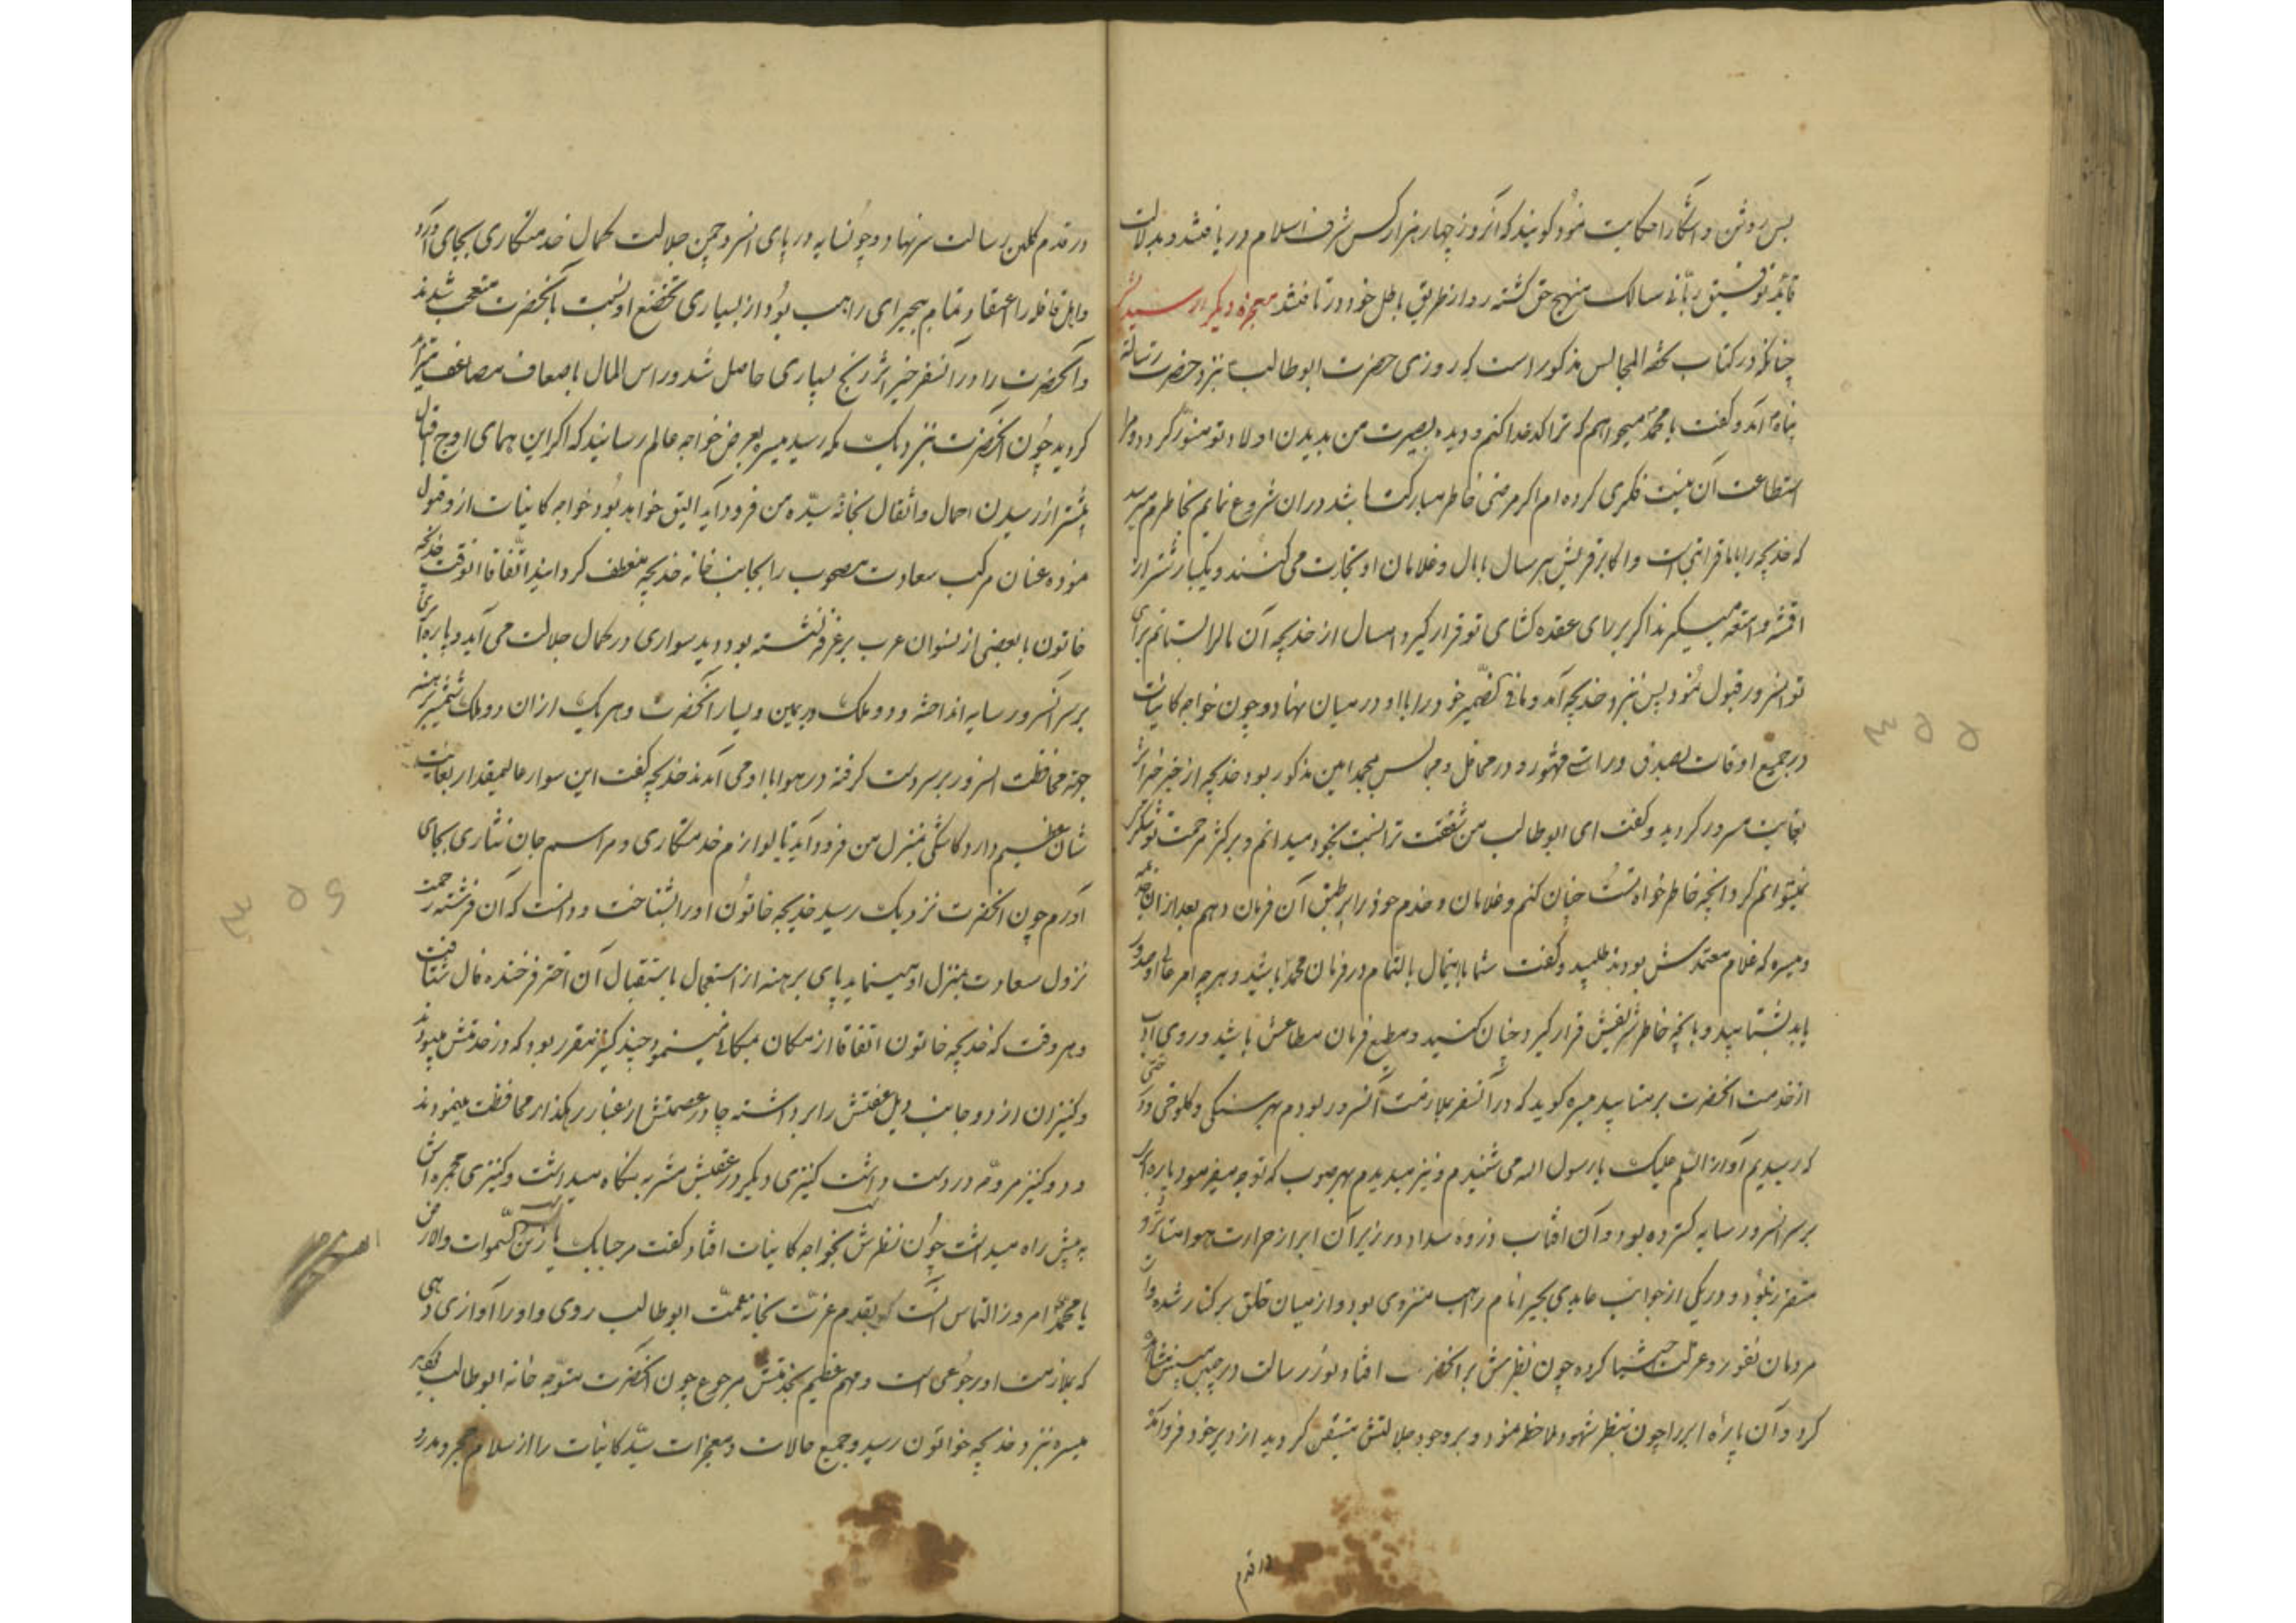 پس روشن و آشکارا حکایت نمود کویند که آنروز چهار هزار کس شرف اسلام دریافتند و بدلالت
قائد توفیق ربّانی سالک منهج حق کشته رو از طریق باطل خود درتافتند معجزه دیکر از سید
چنانکه در کتاب تحفة المجالس مذکور است که روزی حضرت ابوطالب بنزد حضرت رسالت
پناه آمد و کفت یا محمد میخواهم که ترا کدخدا کنم و دیده بصیرت من بدیدن اولاد تو منور کردد و مرا
استطاعت آن نیست فکری کرده ام اکر مرضی خاطر مبارکت باشد در ان شروع نمایم بخاطرم میرسد
که خدیجه را با ما قرابتی است و اکابر قریش هر سال با مال و غلامان او تجارت می کنند و یکبار شتر از
اقمشه و امتعه میکیرند اکر بر رای عقده کشای تو قرار کیرد امسال از خدیجه آن مال را بستانم برای
تو انسرور قبول نمود پس نزد خدیجه آمد و ما فی الضمیر خود را با او در میان نهاد و چون خواجه کاینات
در جمیع اوقات بصدق و راستی مشهور و در محافل و مجالس بمحمد امین مذکور بود خدیجه از خبر خیر اثر
بغایت مسرور کردید و کفت ای ابوطالب من شفقت ترا نسبت بخود میدانم و بر کثر مرحمت تو شکر
نمیتوانم کرد و انچه خاطر خواه تست چنان کنم و غلامان و خدم خود را بر طبق آن فرمان دهم بعد از ان
و میسره که غلام معتمدش بودند طلبید و کفت شما با اینمال بالتمام در فرمان محمد باشید و هر چه امر عالی او صدور
یابد بشتابید و بانچه خاطر شریفش قرار کیرد چنان کنید و مطیع فرمان مطاعش باشید و روی ادب
از خدمت انحضرت برمتابید میسره کوید که در آن سفر بملازمت آنسرور بودم بهر سنکی و کلوخی و درختی
که رسیدیم آواز السّلم علیک یا رسول اله می شنیدم و نیز میدیدم بهر صوب که توجه میفرمود پاره ابر
بر سر انسرور سایه کسترده بود و آن افتاب ذروه سداد در زیر آن ابر از حرارت هوا متاثر و
متضرر نبود و در یکی از جوانب عابدی بحیرا نام راهب منزوی بود و از میان خلق برکنار شده و از
مردمان نفور و عزلت کرده چون نظرش بر انحضرت افتاد نور رسالت در جبین مبینش مشاهده
کرد و آن پاره ابر را چون بنظر شهود ملاحظه نمود و بر وجود جلالتش متیقن کردید از دیر خود فرود آمد
در قدم
در قدم کلبن رسالت سر نهاد و چون سایه در پای انسرو چمن جلالت کمال خدمتکاری بجای آورد
و اهل قافله را اعتقاد تمام ببحیرای راهب بود از بسیاری تخضع او نسبت بانحضرت متعجب شدند
و آنحضرت را در آن سفر خیر اثر رنج بسیاری حاصل شد و راس المال باضعاف مضاعف
کردید چون انحضرت بنزدیک مکه رسید میسره بعرض خواجه عالم رسانید که اکر این همای اوج اقبال
پیشتر از رسیدن احمال و اثقال بخانه سیّده من فرود آید الیق خواهد بود خواجه کاینات از و قبول
نموده عنان مرکب سعادت مصحوب را بجانب خانه خدیجه منعطف کردانید اتفاقا انوقت خدیجه
خاتون با بعضی از نسوان عرب بر غرفه نشسته بود دید سواری در کمال جلالت می آید و پاره ابری
بر سر آنسرور سایه انداخته و دو ملک در یمین و یسار انحضرت و هر یک از ان دو ملک شمشیر برهنه
جهة محافظت انسرور بر سر دست کرفته در هوا با او می آمدند خدیجه کفت این سوار عالیمقدار بغایت
شان عظیم دارد کاشکی بمنزل من فرود آید تا لوازم خدمتکاری و مراسم جان نثاری بجای
آورم چون انحضرت نزدیک رسید خدیجه خاتون اورا بشناخت و دانست که آن فرشته رحمت
نزول سعادت بمنزل او مینماید پای برهنه از استعجال باستقبال آن اختر فرخنده فال شتافت
و هر وقت که خدیجه خاتون اتفاقا از مکان بمکانی میشد چند کنیز مقرر بود که در خدمتش میبودند
و کنیزان از دو جانب ذیل عفتش را برداشته چادر عصمتش از غبار رهکذار محافظت مینمودند
و دو کنیز مروّحه در دست داشت کنیزی دیکر در عقبش مشربه نکاه میداشت و کنیزی مجمره اش
به پیش راه میداشت چون نظرش بخواجه کاینات افتاد کفت مرحبا بک یا زین السّموات والارض
یا محمد امروز التماس آنست که بقدم عزت بخانه عمت ابوطالب روی و او را آوازی دهی
که بملازمت او رجوعی است و مهم عظیم بخدمتش مرجوع چون انحضرت متوجه خانه ابوطالب کردید
میسره بنزد خدیجه خواتون رسید و جمیع حالات و معجزات سیّد کاینات را از سلام حجر و مدر و